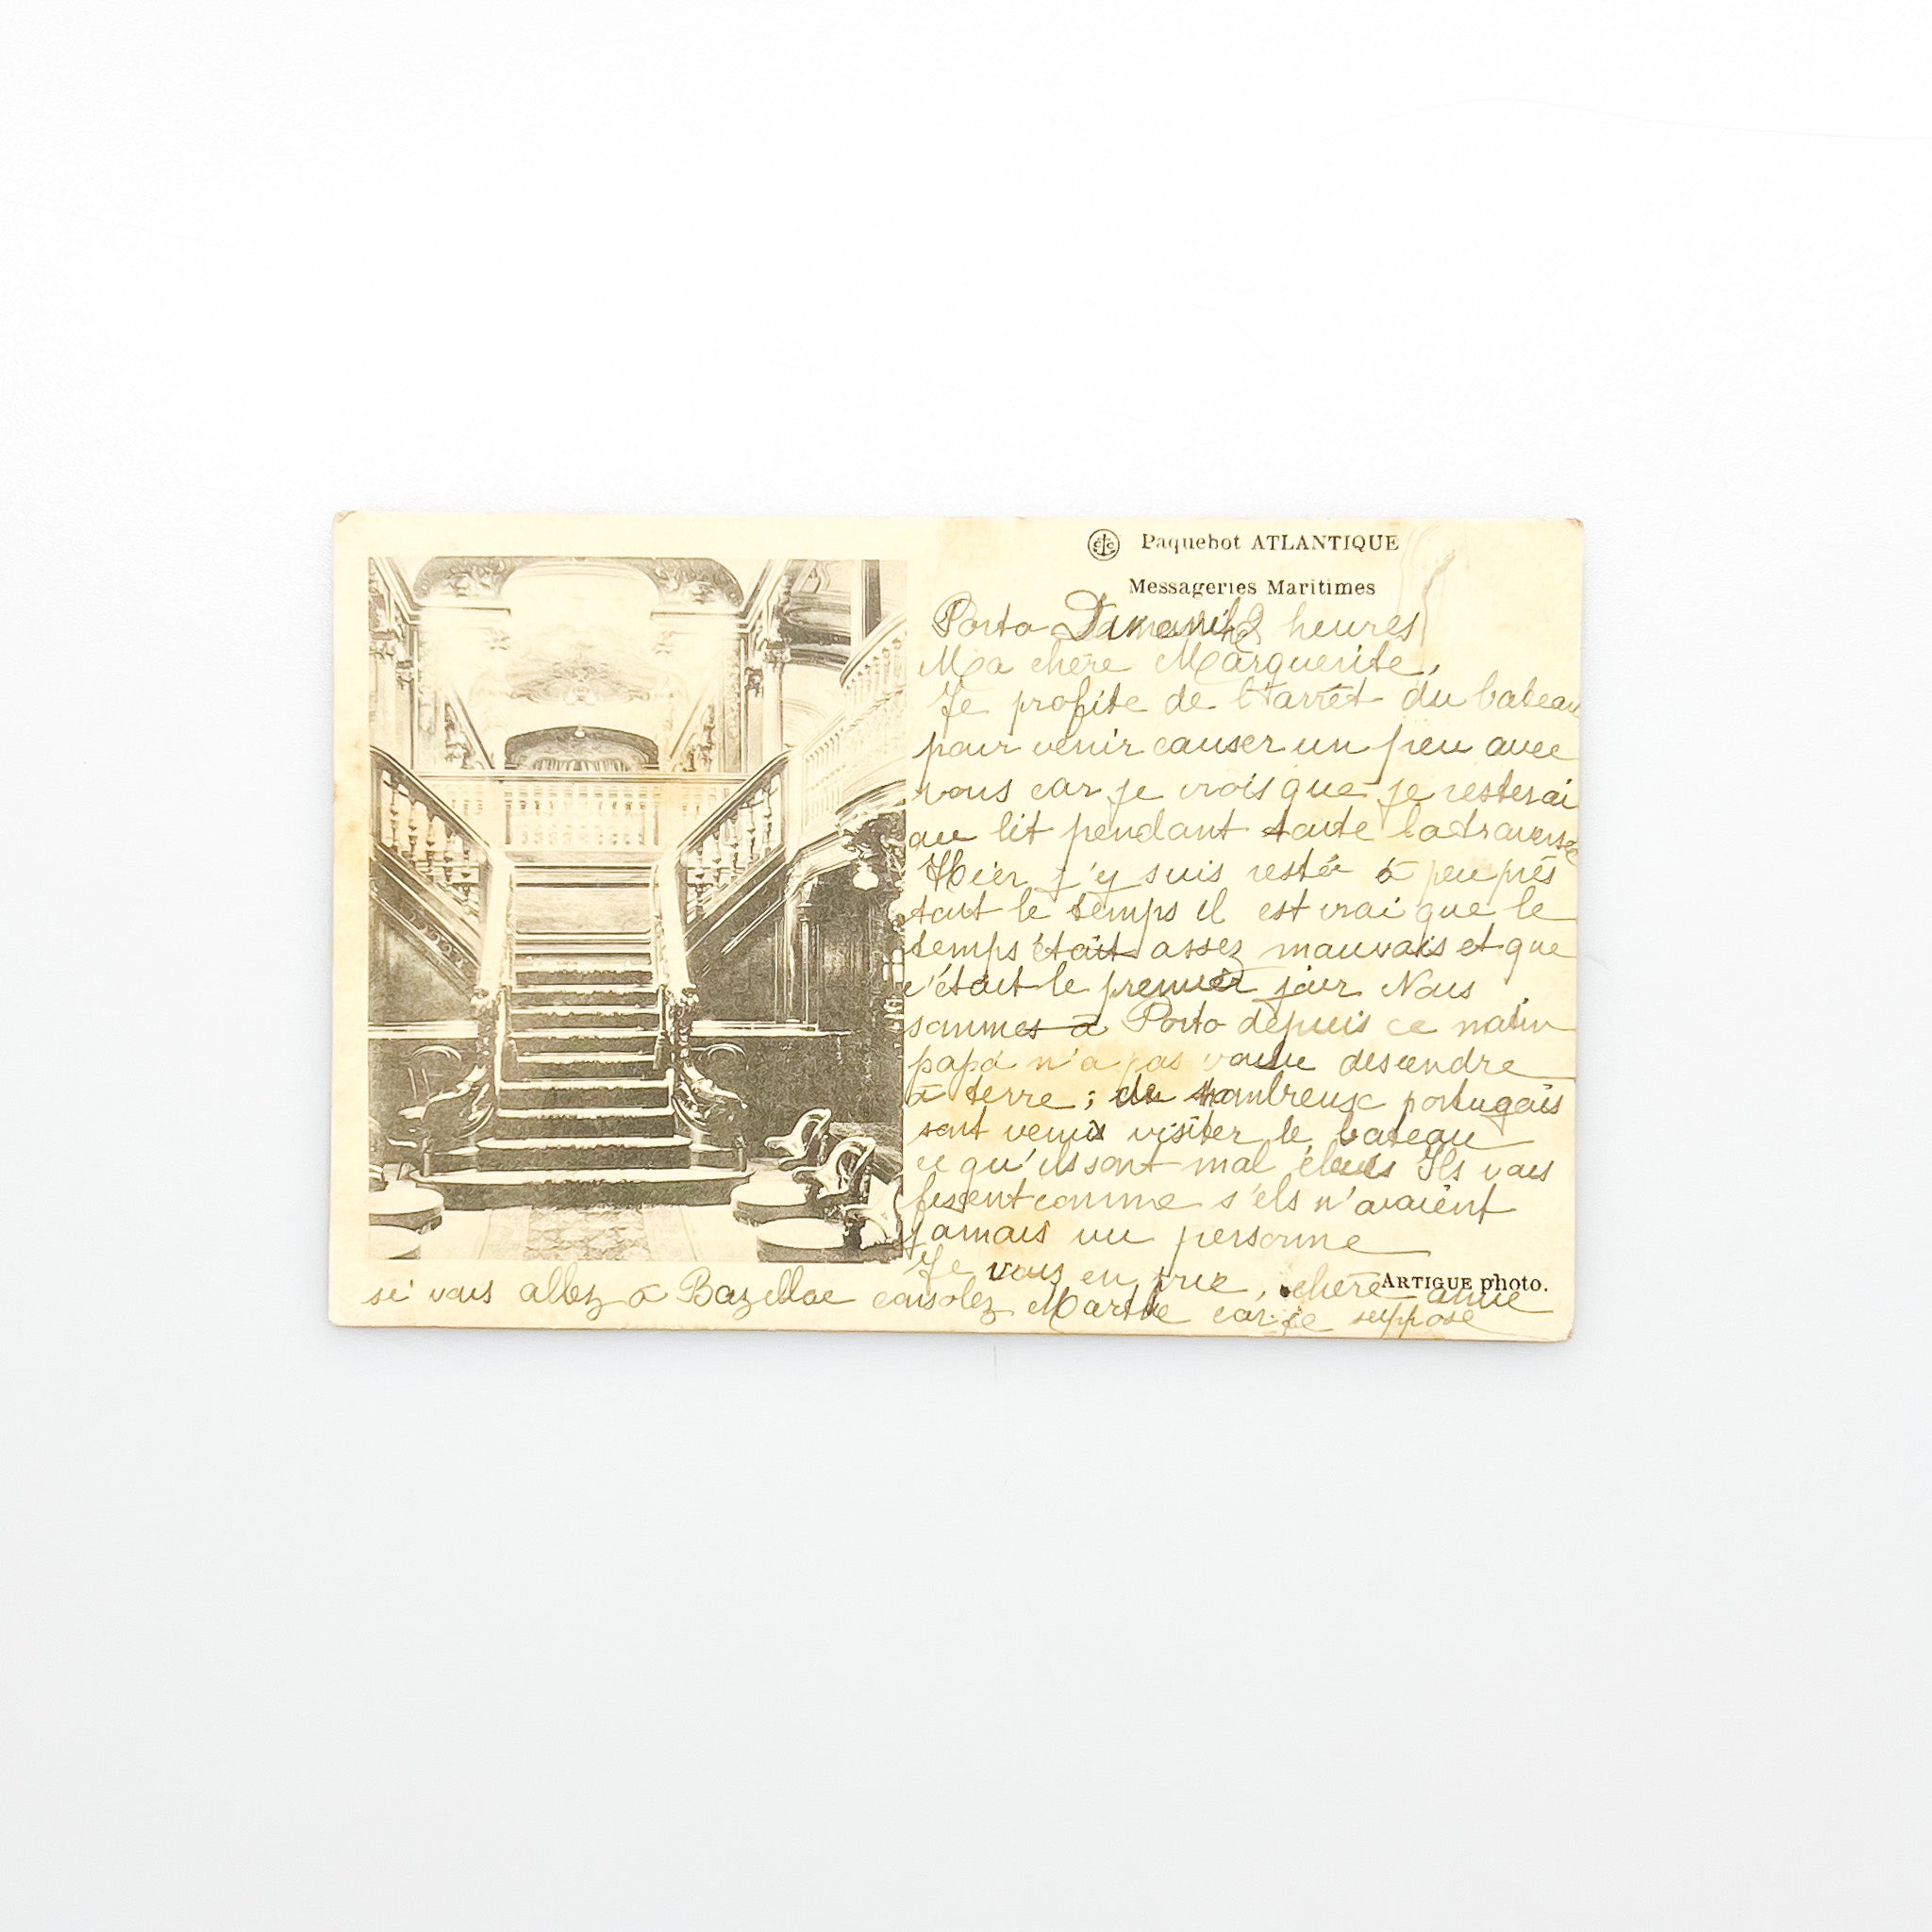 Paquebot ATLANTIQUE
Messageries Maritimes
Porto heures
Ma chère Marguerite,
Je profite de l'arrêt du bateau
pour venir causer un peu avec
vous car je crois que je resterai
au lit pendant toute la traversée
Hier j'y suis resté à peu près
tout le temps il est vrai que le
temps était assez mauvais et que
c'était le premier jour Nous
sommes à Porto depuis ce matin
papa n'a pas voulu descendre
à terre ; de nombreux portugais
sont venus visiter le bateau
ce qu'ils sont mal élevés Ils vous
fixent comme s'ils n'avaient
jamais vu personne
Je vous en prie, chère amie
ARTIGUE photo.
si vous allez à Bazillac consolez Marthe car je suppose